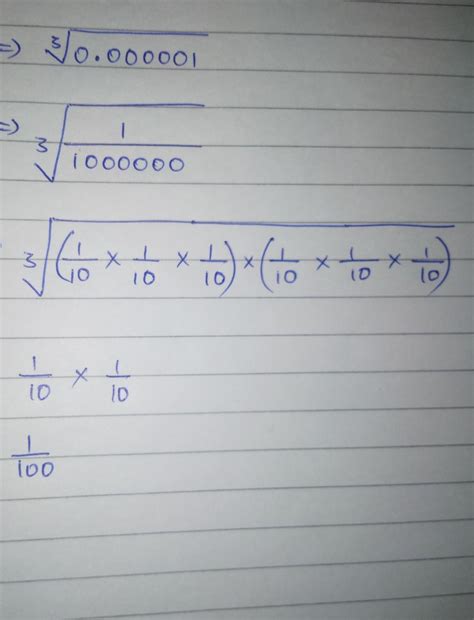 => ∛0.000001
=> ∛(1/1000000)
∛((1/10 × 1/10 × 1/10) × (1/10 × 1/10 × 1/10))
1/10 × 1/10
1/100